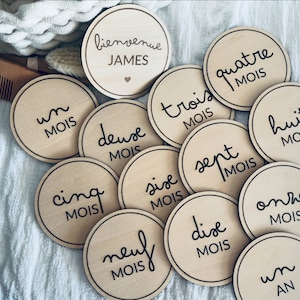 bienvenue
JAMES
un
MOIS
deux
MOIS
trois
MOIS
quatre
MOIS
cinq
MOIS
six
MOIS
sept
MOIS
huit
MOIS
neuf
MOIS
dix
MOIS
onze
MOIS
un
AN